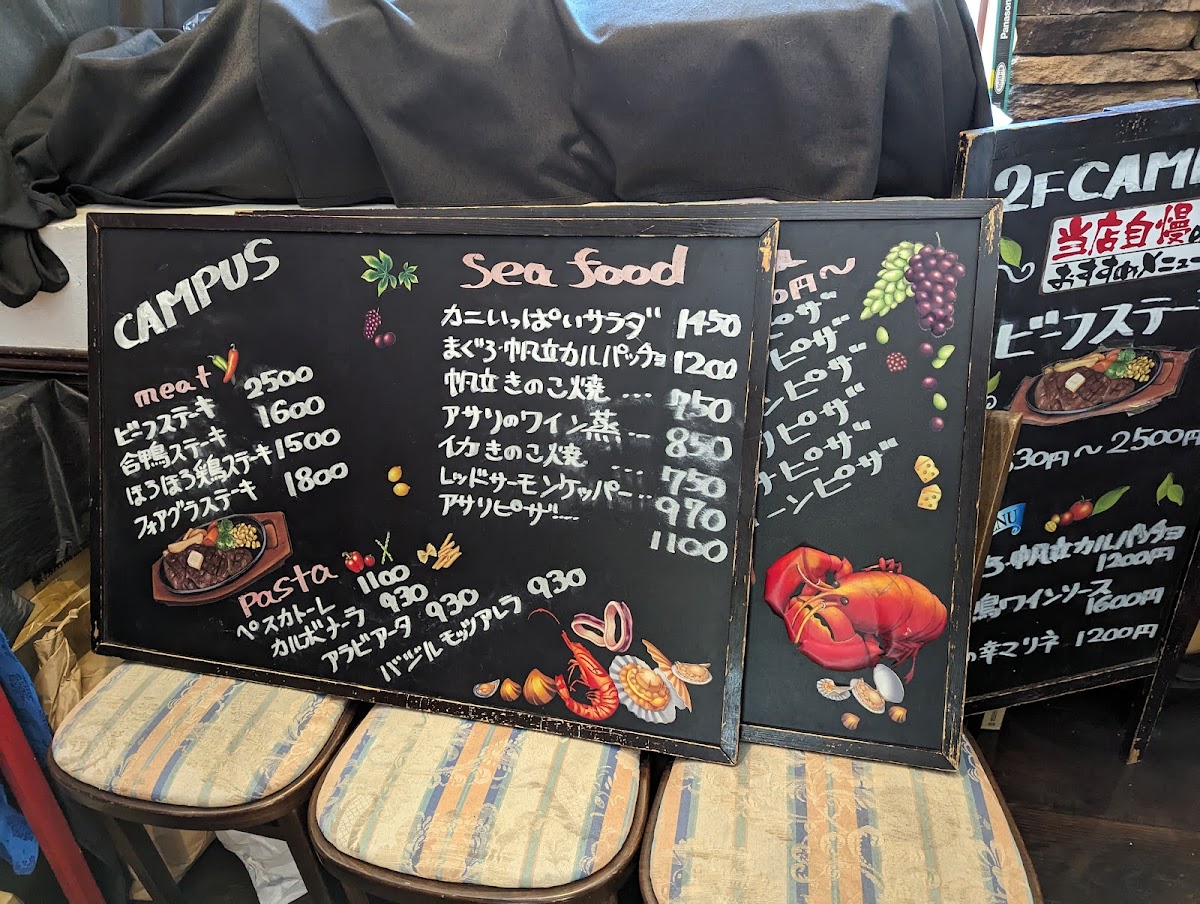 CAMPUS
meat
ビーフステーキ 2500
合鴨ステーキ 1600
ほろほろ鶏ステーキ 1500
フォアグラステーキ 1800
Pasta
ペスカトーレ 1100
カルボナーラ 930
アラビアータ 930
バジルモッツアレラ 930
Sea food
カニいっぱいサラダ 1450
まぐろ・帆立カルパッチョ 1200
帆立きのこ焼 ... 950
アサリのワイン蒸 ... 850
イカきのこ焼 ... 750
レッドサーモンケッパー .. 970
アサリピザ ..... 1100
円～
ピザ
ピザ
ンピザ
ピザ
ピザ
ーンピザ
Panasonic
2F CAM
当店自慢の
おすすめメニュー
ビーフステー
30円～2500円
NU
ろ・帆立カルパッチョ
1200円
鳥ワインソース
1600円
辛マリネ 1200円